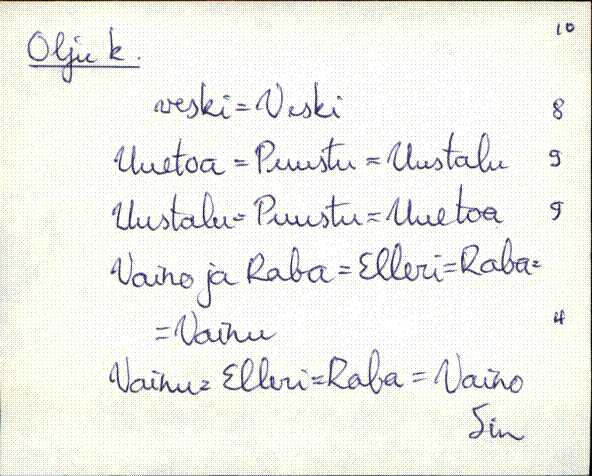 10
Olju k.
veski = Veski 8
Uuetoa = Puustu = Uustalu 9
Uustalu = Puustu = Uuetoa 9
Vaino ja Raba = Elleri = Raba =
= Vainu 4
Vainu = Elleri = Raba = Vaino
Sin